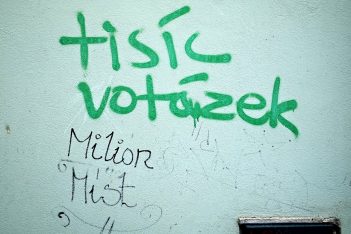 tisíc
votázek
Milion
Míst